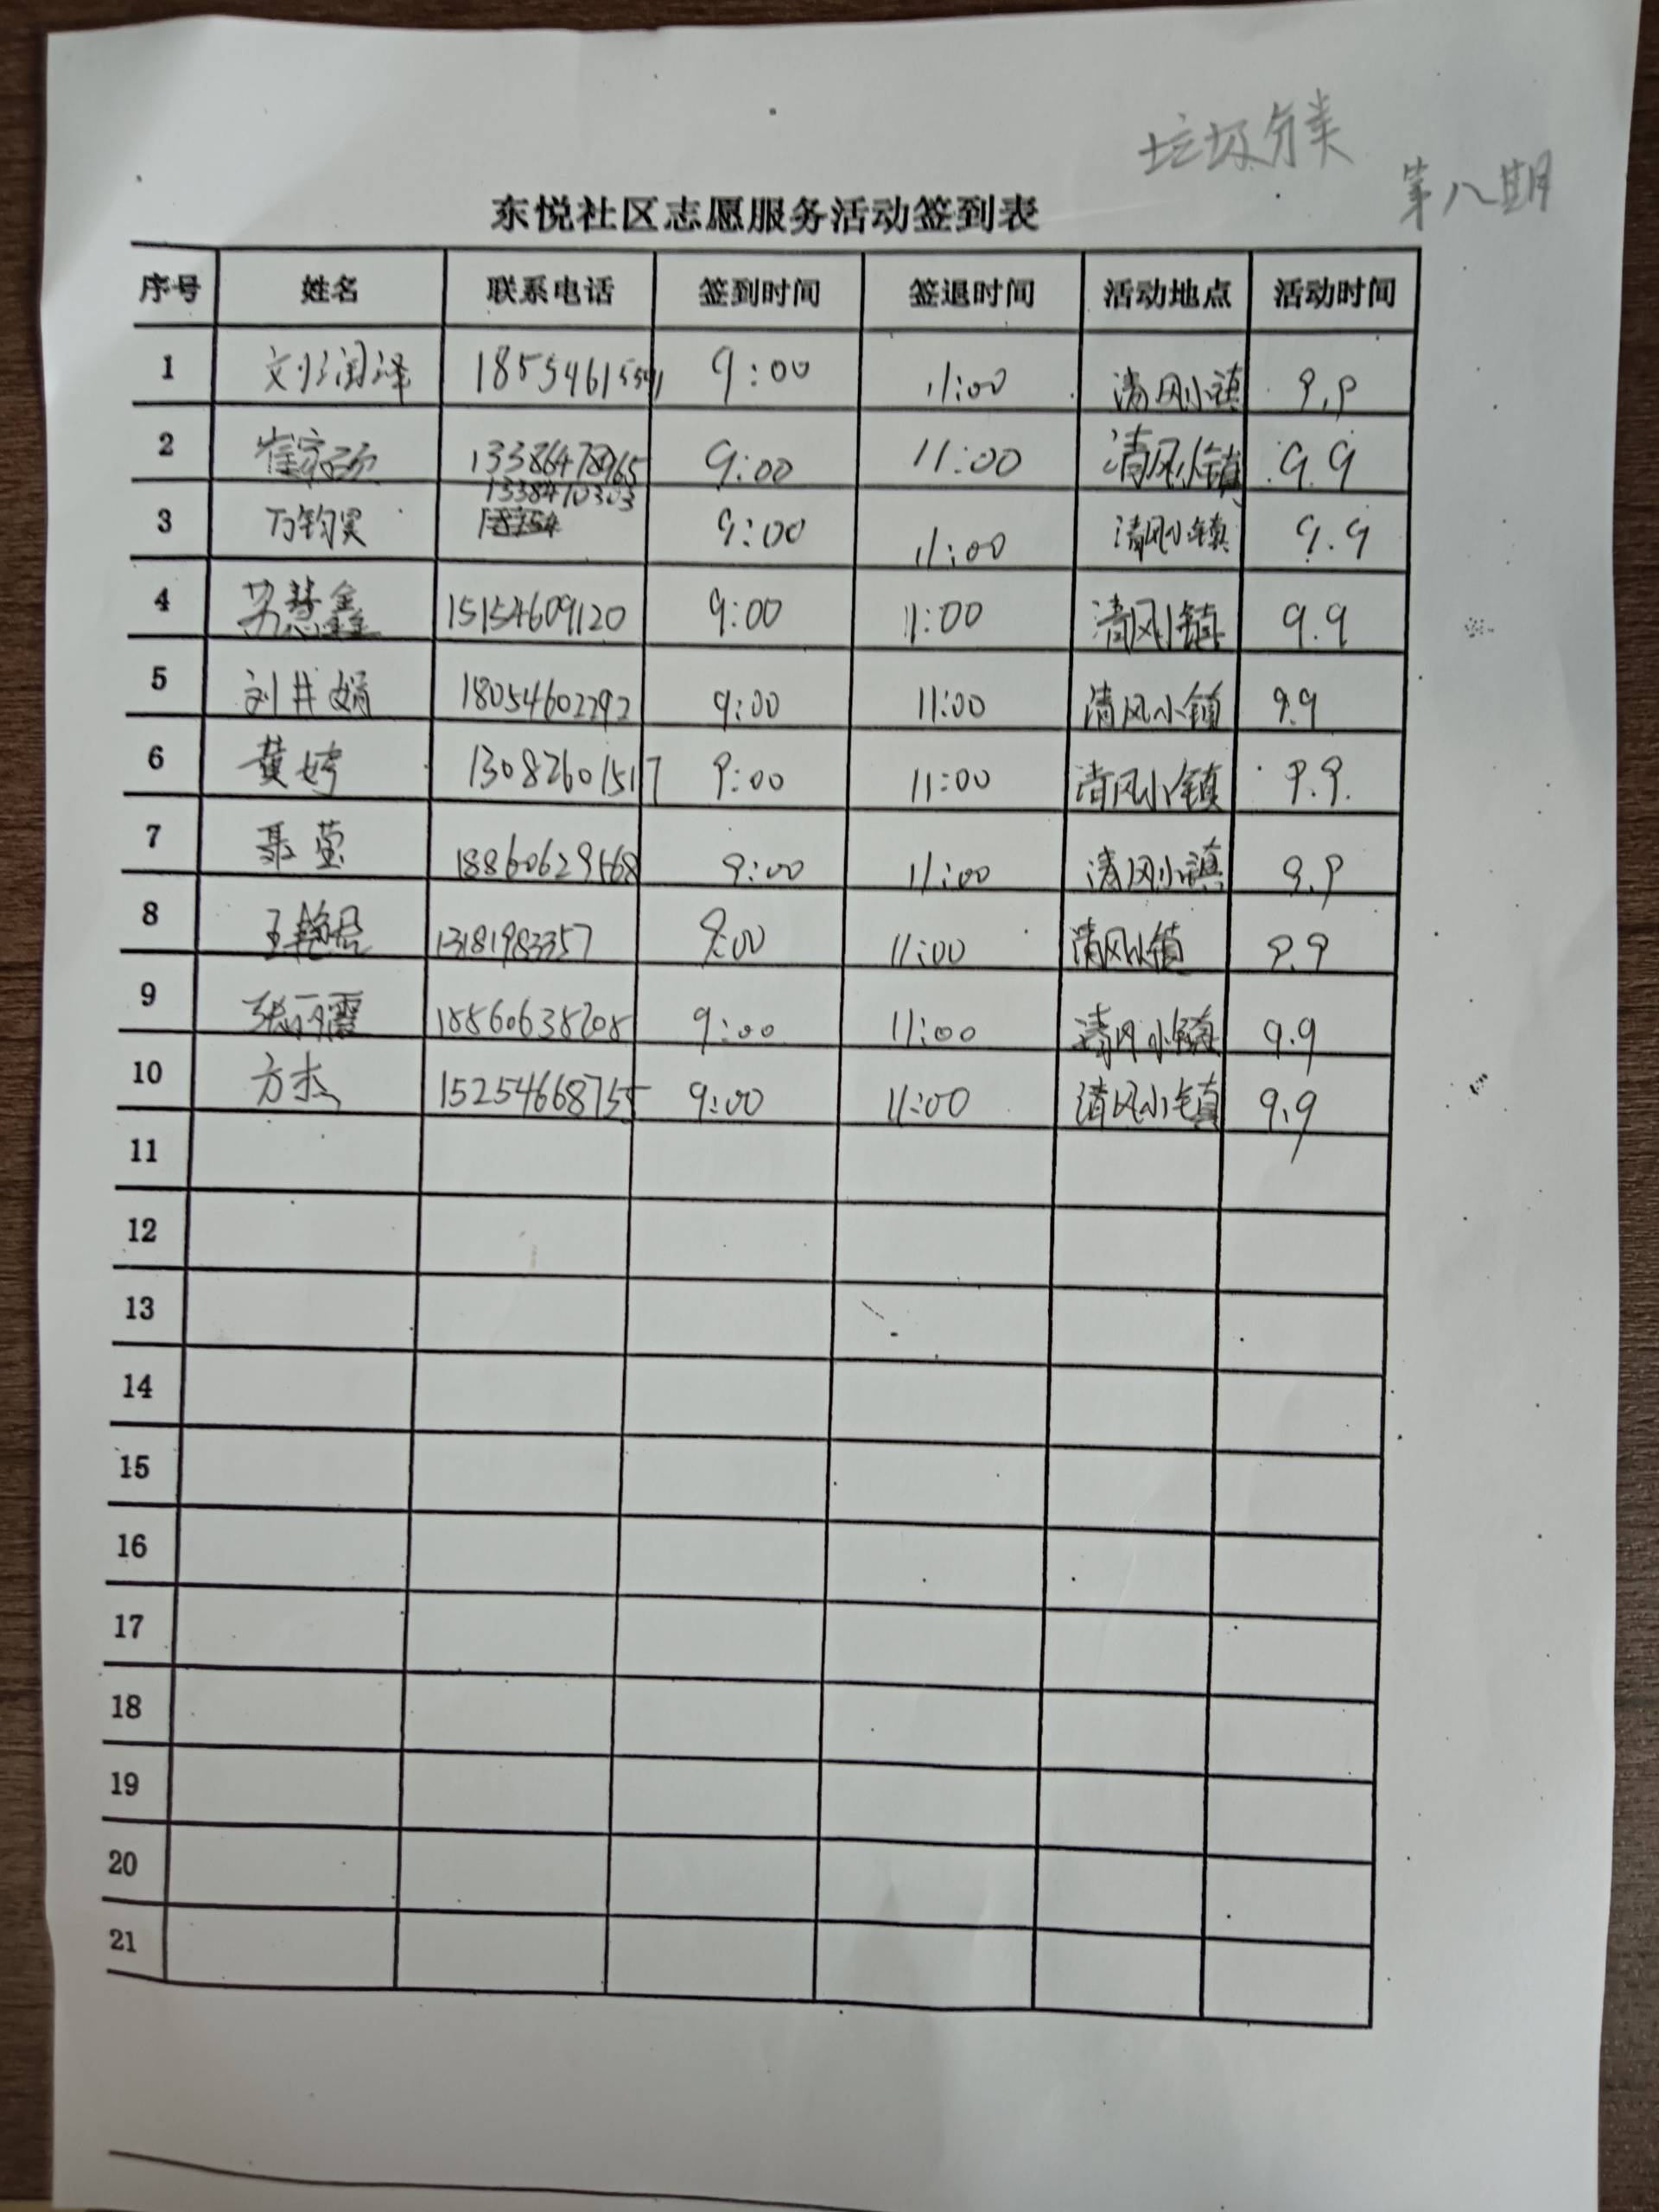 垃圾分类
第八期
东悦社区志愿服务活动签到表
序号 姓名 联系电话 签到时间 签退时间 活动地点 活动时间
1 刘润泽 9:00 11:00 清风小镇 9.9
2 崔 13386478965 9:00 11:00 清风小镇 9.9
3 万钧昊 1338410303 9:00 11:00 清风小镇 9.9
4 苏慧鑫 15154609120 9:00 11:00 清风小镇 9.9
5 刘井娟 18054602292 9:00 11:00 清风小镇 9.9
6 黄婷 13082601517 9:00 11:00 清风小镇 9.9.
7 聂莹 18860629568 9:00 11:00 清风小镇 9.9
8 王艳君 13181983357 9:00 11:00 清风小镇 9.9
9 张丽霞 18860638208 9:00 11:00 清风小镇 9.9
10 方杰 15254668755 9:00 11:00 清风小镇 9.9
11
12
13
14
15
16
17
18
19
20
21